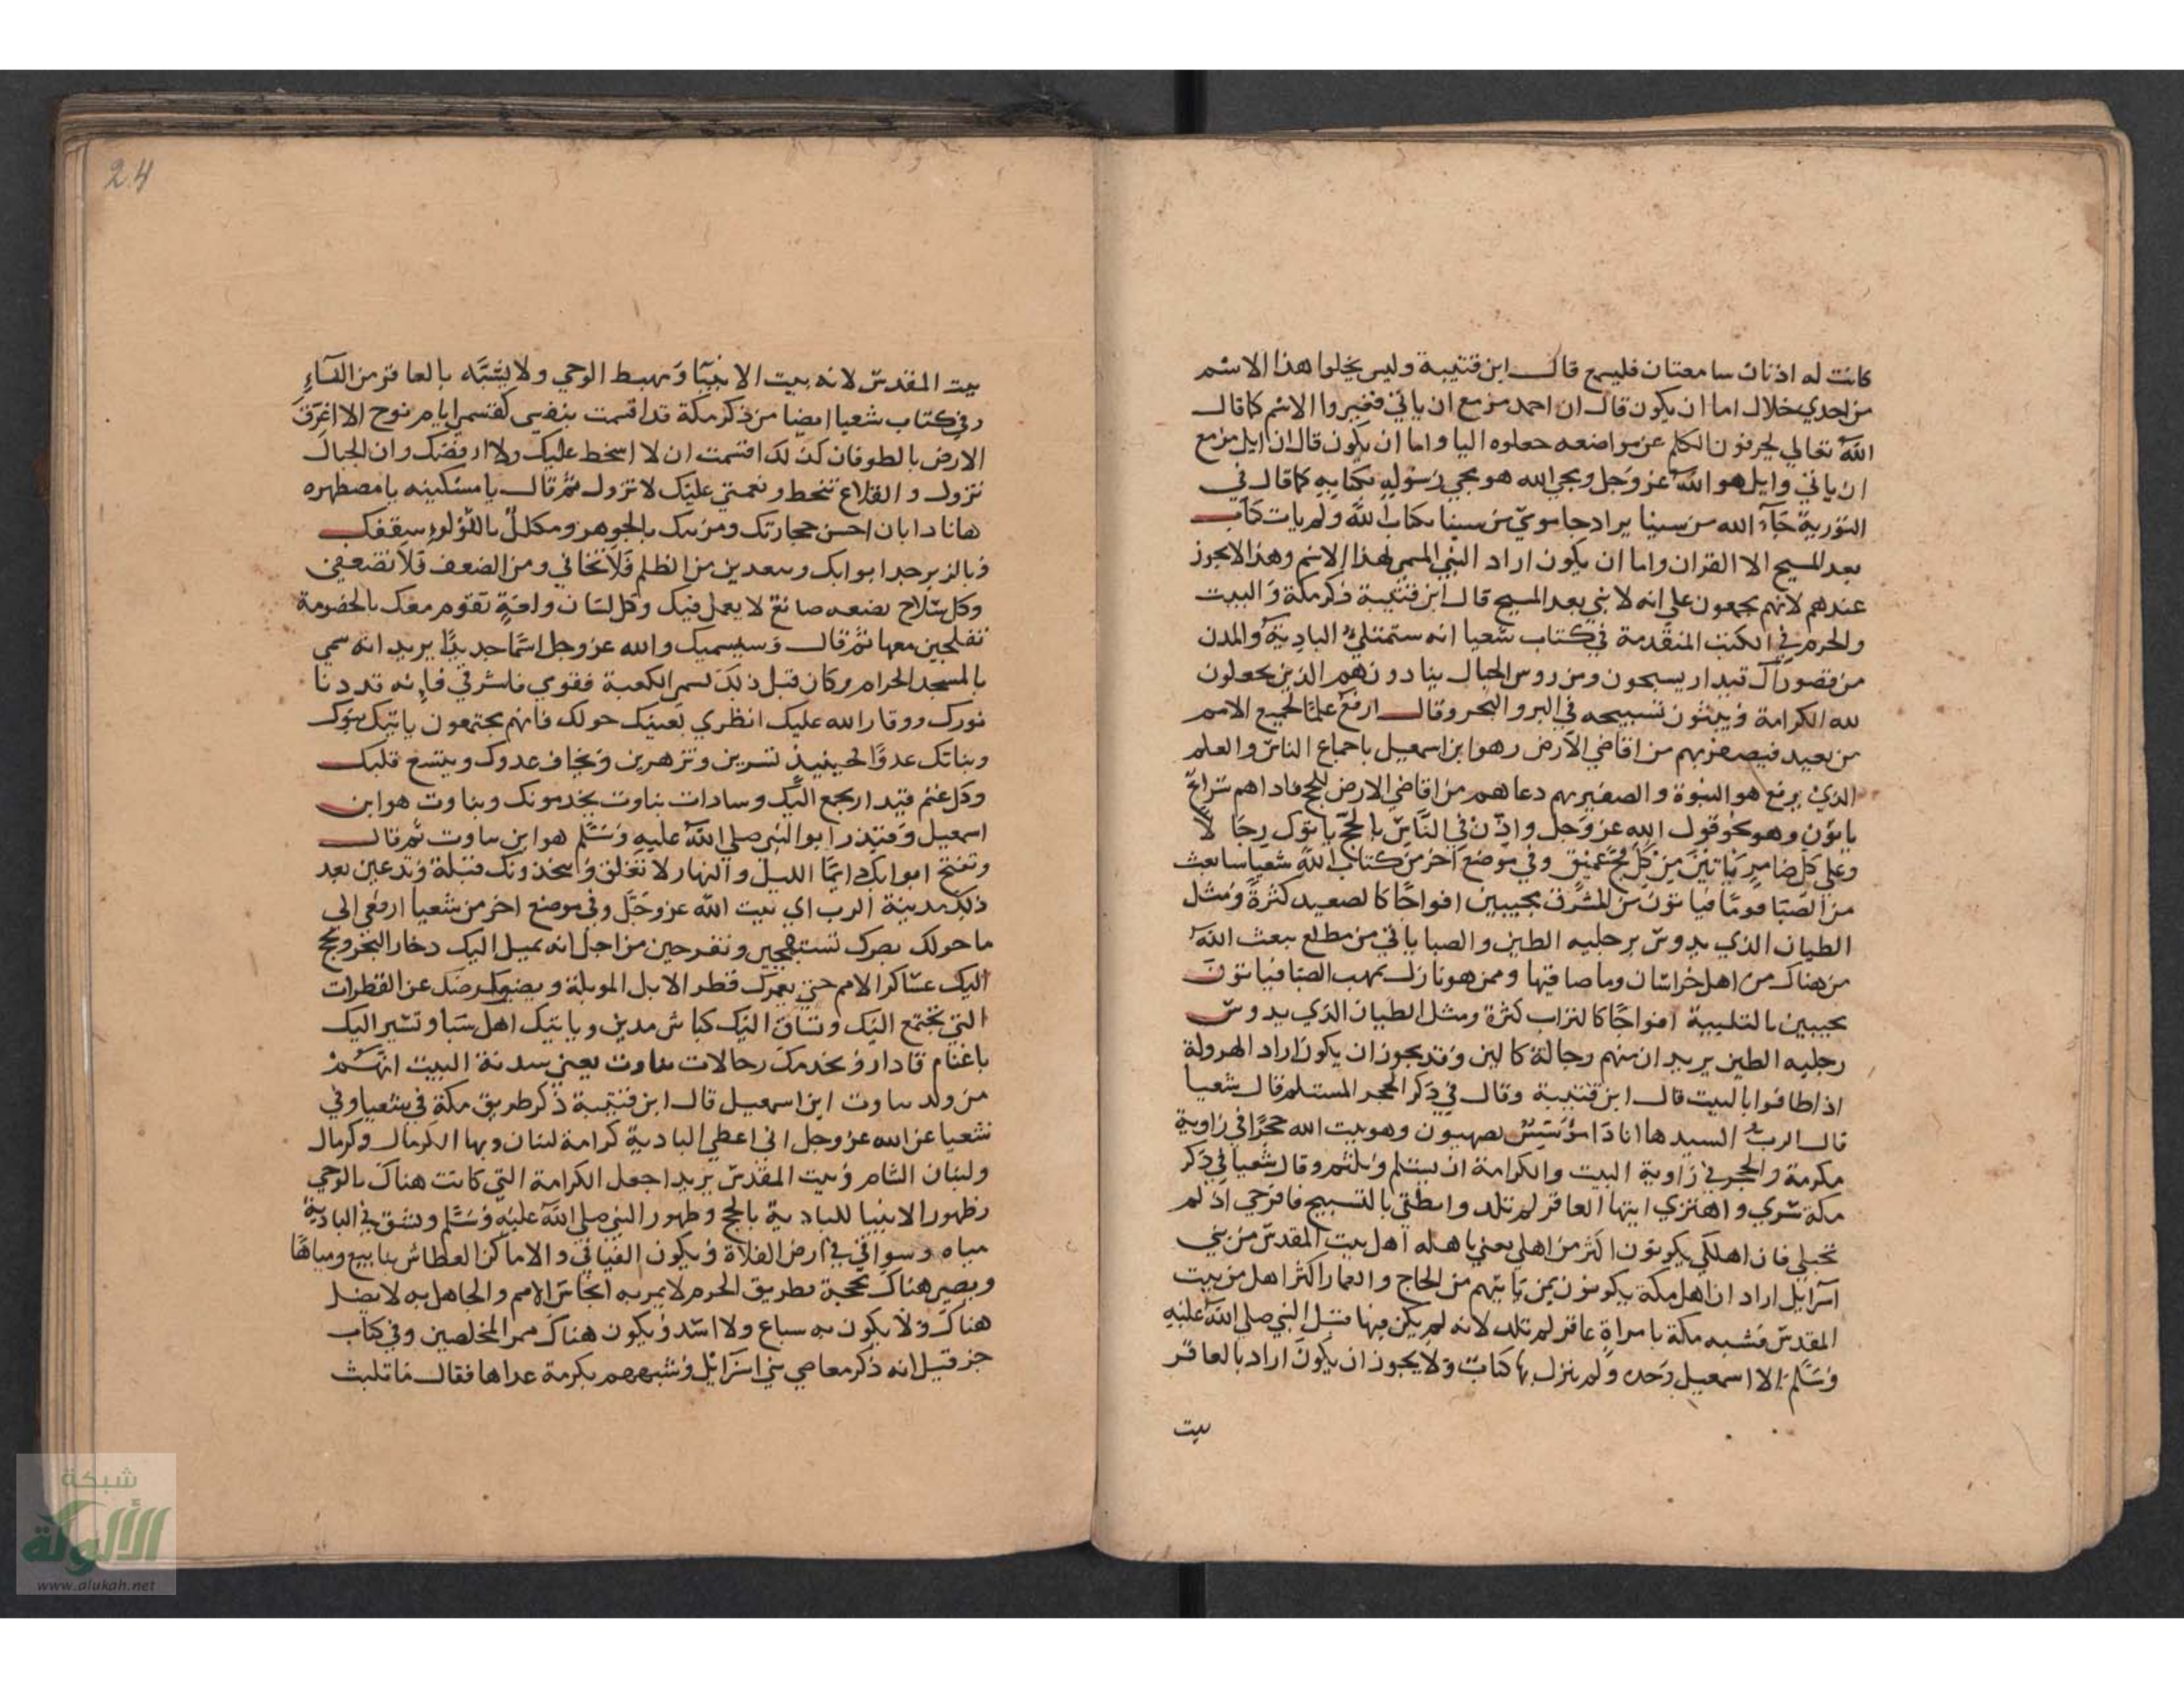 كانت له اذنان سامعتان فليسمع قال ابن قتيبة وليس يخلوا هذا الاسم
من احدي خلال اما ان يكون قال ان احمد مزمع ان ياتي فغيروا الاسم كما قال
الله تعالي يحرفون الكلم عن مواضعه جعلوه اليا واما ان يكون قال ان ايل مزمع
ان ياتي وايل هو الله عز وجل ومجي الله هو مجي رسوله بكتابه كما قال في
التورية جآء الله من سينا يراد جا موسي من سينا بكتاب الله ولم يات كتاب
بعد المسيح الا القران واما ان يكون اراد النبي المسمي بهذا الاسم وهذا لا يجوز
عندهم لانهم يجمعون علي انه لا نبي بعد المسيح قال ابن قتيبة ذكر مكة والبيت
والحرم في الكتب المتقدمة في كتاب شعيا انه ستمتلئ البادية والمدن
من قصور آل قيدار يسبحون ومن روس الجبال ينادون هم الذين يجعلون
لله الكرامة ويبثون تسبيحه في البر والبحر وقال ارفع علما لجميع الامم
من بعيد فيصفر بهم من اقاصي الارض وهو ابن اسمعيل باجماع الناس والعلم
الذي يرفع هو النبوة والصفير بهم دعاهم من اقاصي الارض للحج فاذا هم سراع
ياتون وهو نحو قول الله عز وجل واذن في الناس بالحج ياتوك رجالا
وعلي كل ضامر ياتين من كل فج عميق وفي موضع اخر من كتاب الله شعيا سابعث
من الصبا قوما فياتون من المشرق مجيبين افواجا كالصعيد كثرة ومثل
الطيان الذي يدوس برجليه الطين والصبا ياتي من مطلع يبعث الله
من هناك من اهل خراسان وما صاقبها وممن هو نازل بمهب الصبا فياتون
مجيبين بالتلبية افواجا كالتراب كثرة ومثل الطيان الذي يدوس
رجليه الطين يريد ان منهم رجالة كالين وقد يجوز ان يكون اراد الهرولة
اذا طافوا بالبيت قال ابن قتيبة وقال في ذكر الحجر المستلم قال شعيا
قال الرب السيد ها انا ذا مؤسس بصهيون وهو بيت الله حجرا في زاوية
مكرمة والحجر في زاوية البيت والكرامة ان يستلم ويلثم وقال شعيا في ذكر
مكة سري واهتزي ايتها العاقر لم تلد وانطقي بالتسبيح فافرحي اذ لم
تحبلي فان اهلك يكونون اكثر من اهلي يعني باهله اهل بيت المقدس من بني
اسرآيل اراد ان اهل مكة يكونون بمن ياتيهم من الحاج والعمار اكثر اهل من بيت
المقدس فشبه مكة بامراة عاقر لم تلد لانه لم يكن فيها قبل النبي صلي الله عليه
وسلم الا اسمعيل وحده ولم ينزل بها كتاب ولا يجوز ان يكون اراد بالعاقر
بيت
24
بيت المقدس لانه بيت الانبيآ ومهبط الوحي ولا يشبه بالعاقر من النسآء
وفي كتاب شعيا ايضا من ذكر مكة قد اقسمت بنفسي كقسمي ايام نوح الا اغرق
الارض بالطوفان كذلك اقسمت ان لا اسخط عليك ولا ارفضك وان الجبال
تزول والقلاع تنحط ونعمتي عليك لا تزول ثم قال يا مسكينه يا مضطهره
هانا ذا بان احسن حجارتك ومزينك بالجوهر ومكلل باللؤلؤ سقفك
وبالزبرجد ابوابك وتبعدين من الظلم فلا تخافي ومن الضعف فلا تضعفي
وكل سلاح يصنعه صانع لا يعمل فيك وكل لسان ولغة تقوم معك بالخصومة
تفلجين معها ثم قال وسيسميك والله عز وجل اسما جديدا يريد انه سمي
بالمسجد الحرام وكان قبل ذلك يسمي الكعبة فقومي فاشرقي فانه قد دنا
نورك ووقار الله عليك انظري بعينيك حولك فانهم مجتمعون ياتيك بنوك
وبناتك عدوا فحينيذ تسرين وتزهرين ويخاف عدوك ويتسع قلبك
وكل غنم قيدار يجمع اليك وسادات بناوت يخدمونك وبناوت هو ابن
اسمعيل وقيدر ابو النبي صلي الله عليه وسلم هو ابن بناوت ثم قال
وتفتح ابوابك دايما الليل والنهار لا تغلق ويتخذونك قبلة وتدعين بعد
ذلك مدينة الرب اي بيت الله عز وجل وفي موضع اخر من شعيا ارفعي الي
ما حولك بصرك تستبهجين وتفرحين من اجل انه يميل اليك ذخار البحر ويحج
اليك عساكر الامم حتي يعمرك قطر الابل الموبلة ويضيق ارضك عن القطرات
التي تجتمع اليك وتساق اليك كباش مدين وياتيك اهل سبا وتسير اليك
باغنام قادار ويخدمك رجالات بناوت يعني سدنة البيت انهم
من ولد بناوت ابن اسمعيل قال ابن قتيبة ذكر طريق مكة في شعيا وفي
شعيا عن الله عز وجل اني اعطي البادية كرامة لبنان وبها الكرمال وكرمال
ولبنان الشام وبيت المقدس يريد اجعل الكرامة التي كانت هناك بالوحي
وظهور الانبيا للبادية بالحج وظهور النبي صلي الله عليه وسلم وتشق في البادية
مياه وسواقي في ارض الفلاة ويكون الفيافي والاماكن العطاش ينابيع ومياها
ويصير هناك محجة وطريق الحرم لا يمر به انجاس الامم والجاهل به لا يضل
هناك ولا يكون به سباع ولا اسد ويكون هناك ممر المخلصين وفي كتاب
حزقيل انه ذكر معاصي بني اسرآئل وشبههم بكرمة غداها فقال ما تلبث
شبكة
الألوكة
www.alukah.net